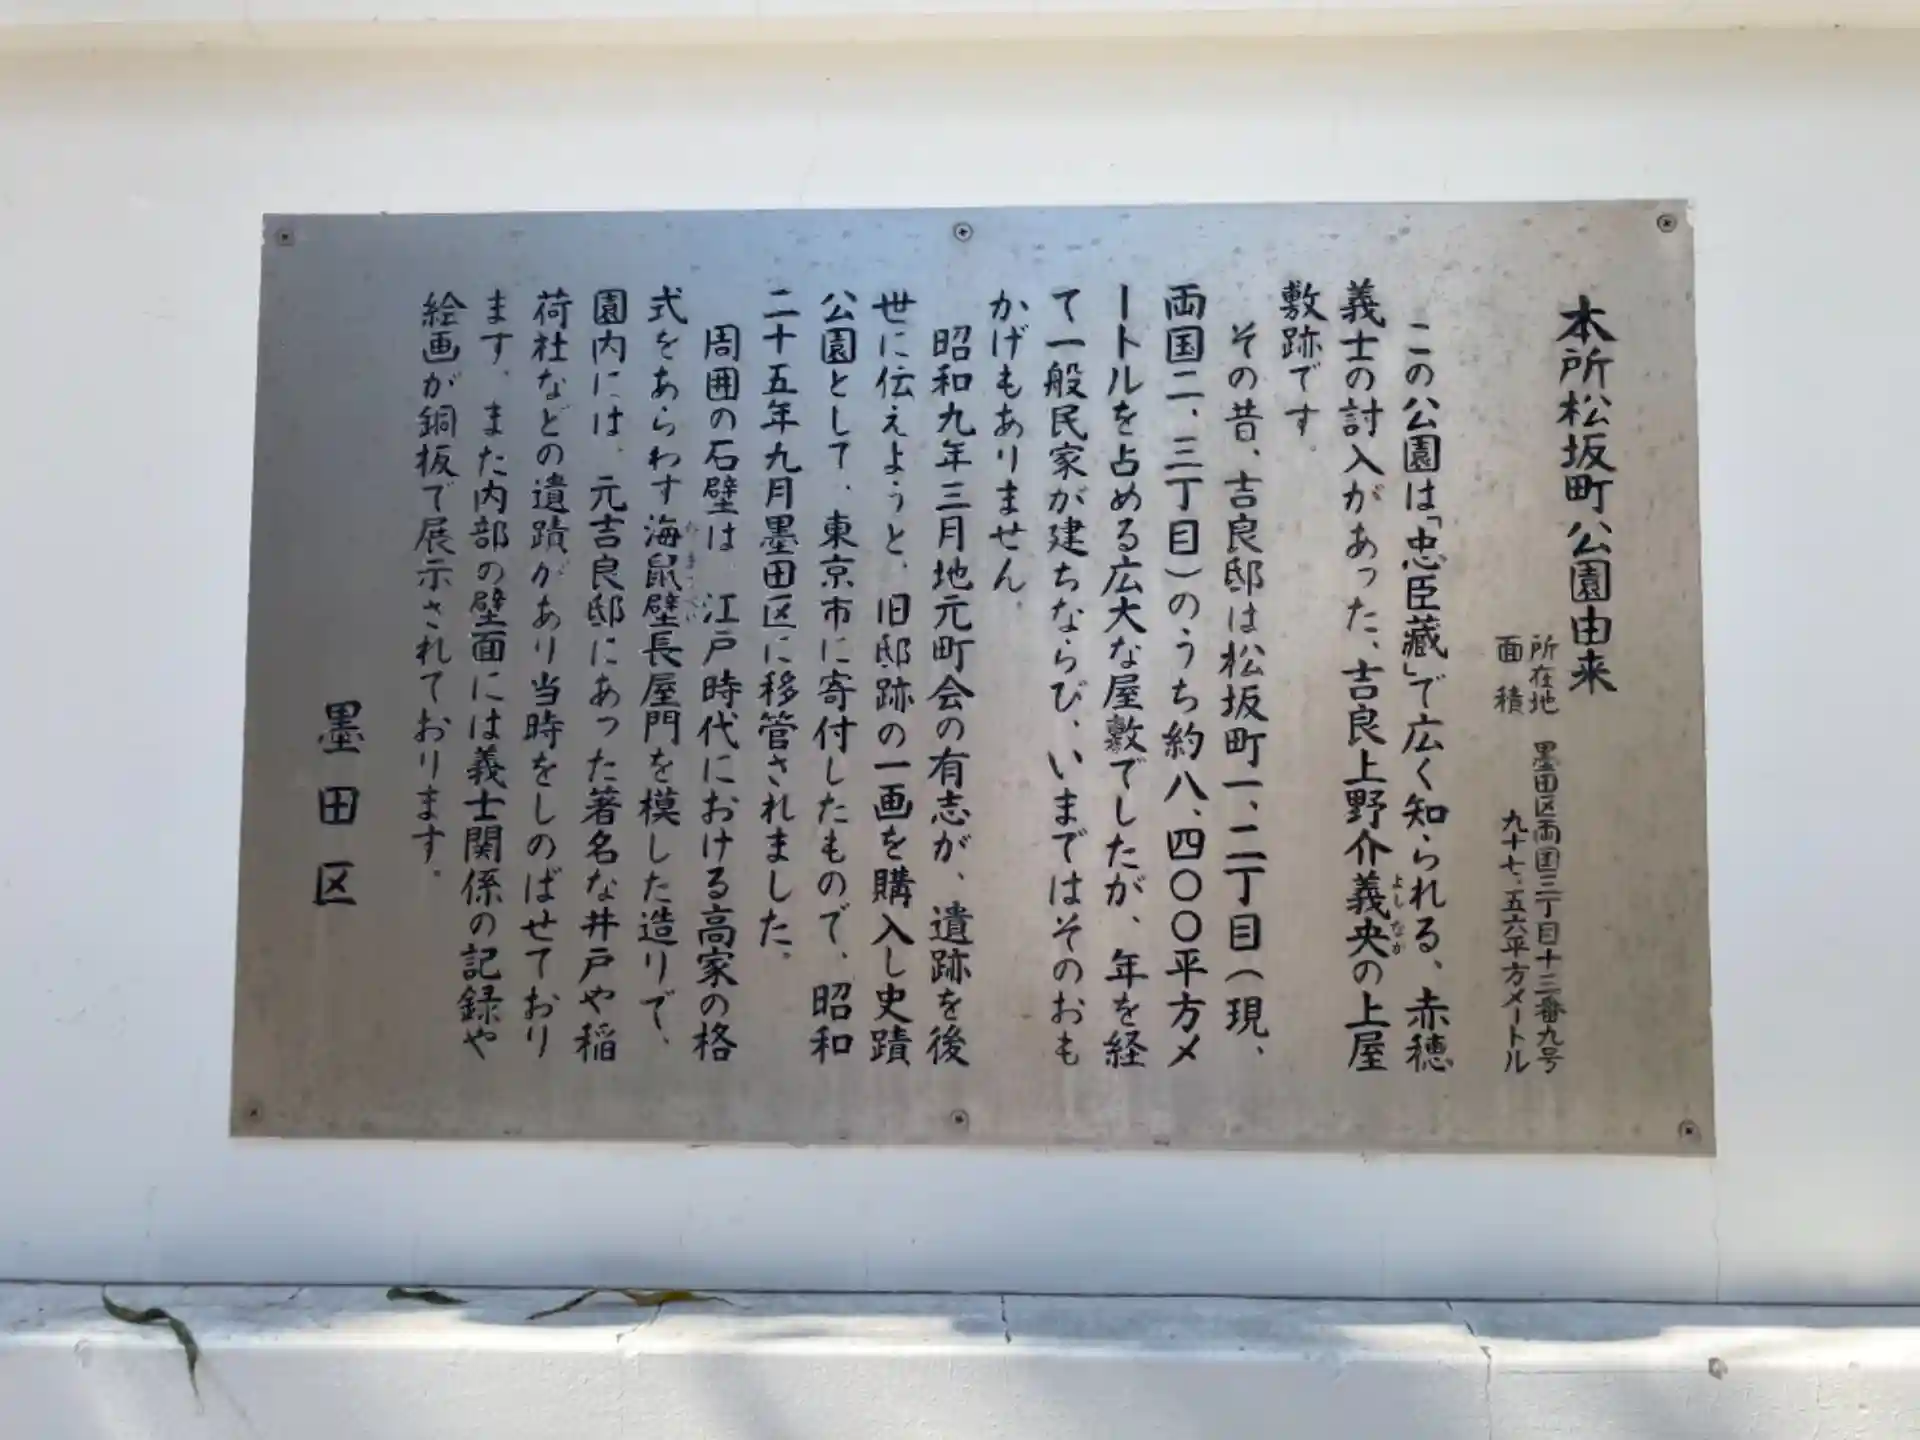 本所松坂町公園由来
所在地　墨田区両国三丁目十三番九号
面　積　　九十七、五六平方メートル
この公園は「忠臣蔵」で広く知られる、赤穂
義士の討入があった、吉良上野介義央の上屋
よしなか
敷跡です。
その昔、吉良邸は松坂町一、二丁目（現、
両国二、三丁目）のうち約八、四〇〇平方メ
ートルを占める広大な屋敷でしたが、年を経
て一般民家が建ちならび、いまではそのおも
かげもありません。
昭和九年三月地元町会の有志が、遺跡を後
世に伝えようと、旧邸跡の一画を購入し史蹟
公園として、東京市に寄付したもので、昭和
二十五年九月墨田区に移管されました。
周囲の石壁は、江戸時代における高家の格
式をあらわす海鼠壁長屋門を模した造りで、
園内には、元吉良邸にあった著名な井戸や稲
荷社などの遺蹟があり当時をしのばせており
ます。また内部の壁面には義士関係の記録や
絵画が銅板で展示されております。
墨田区